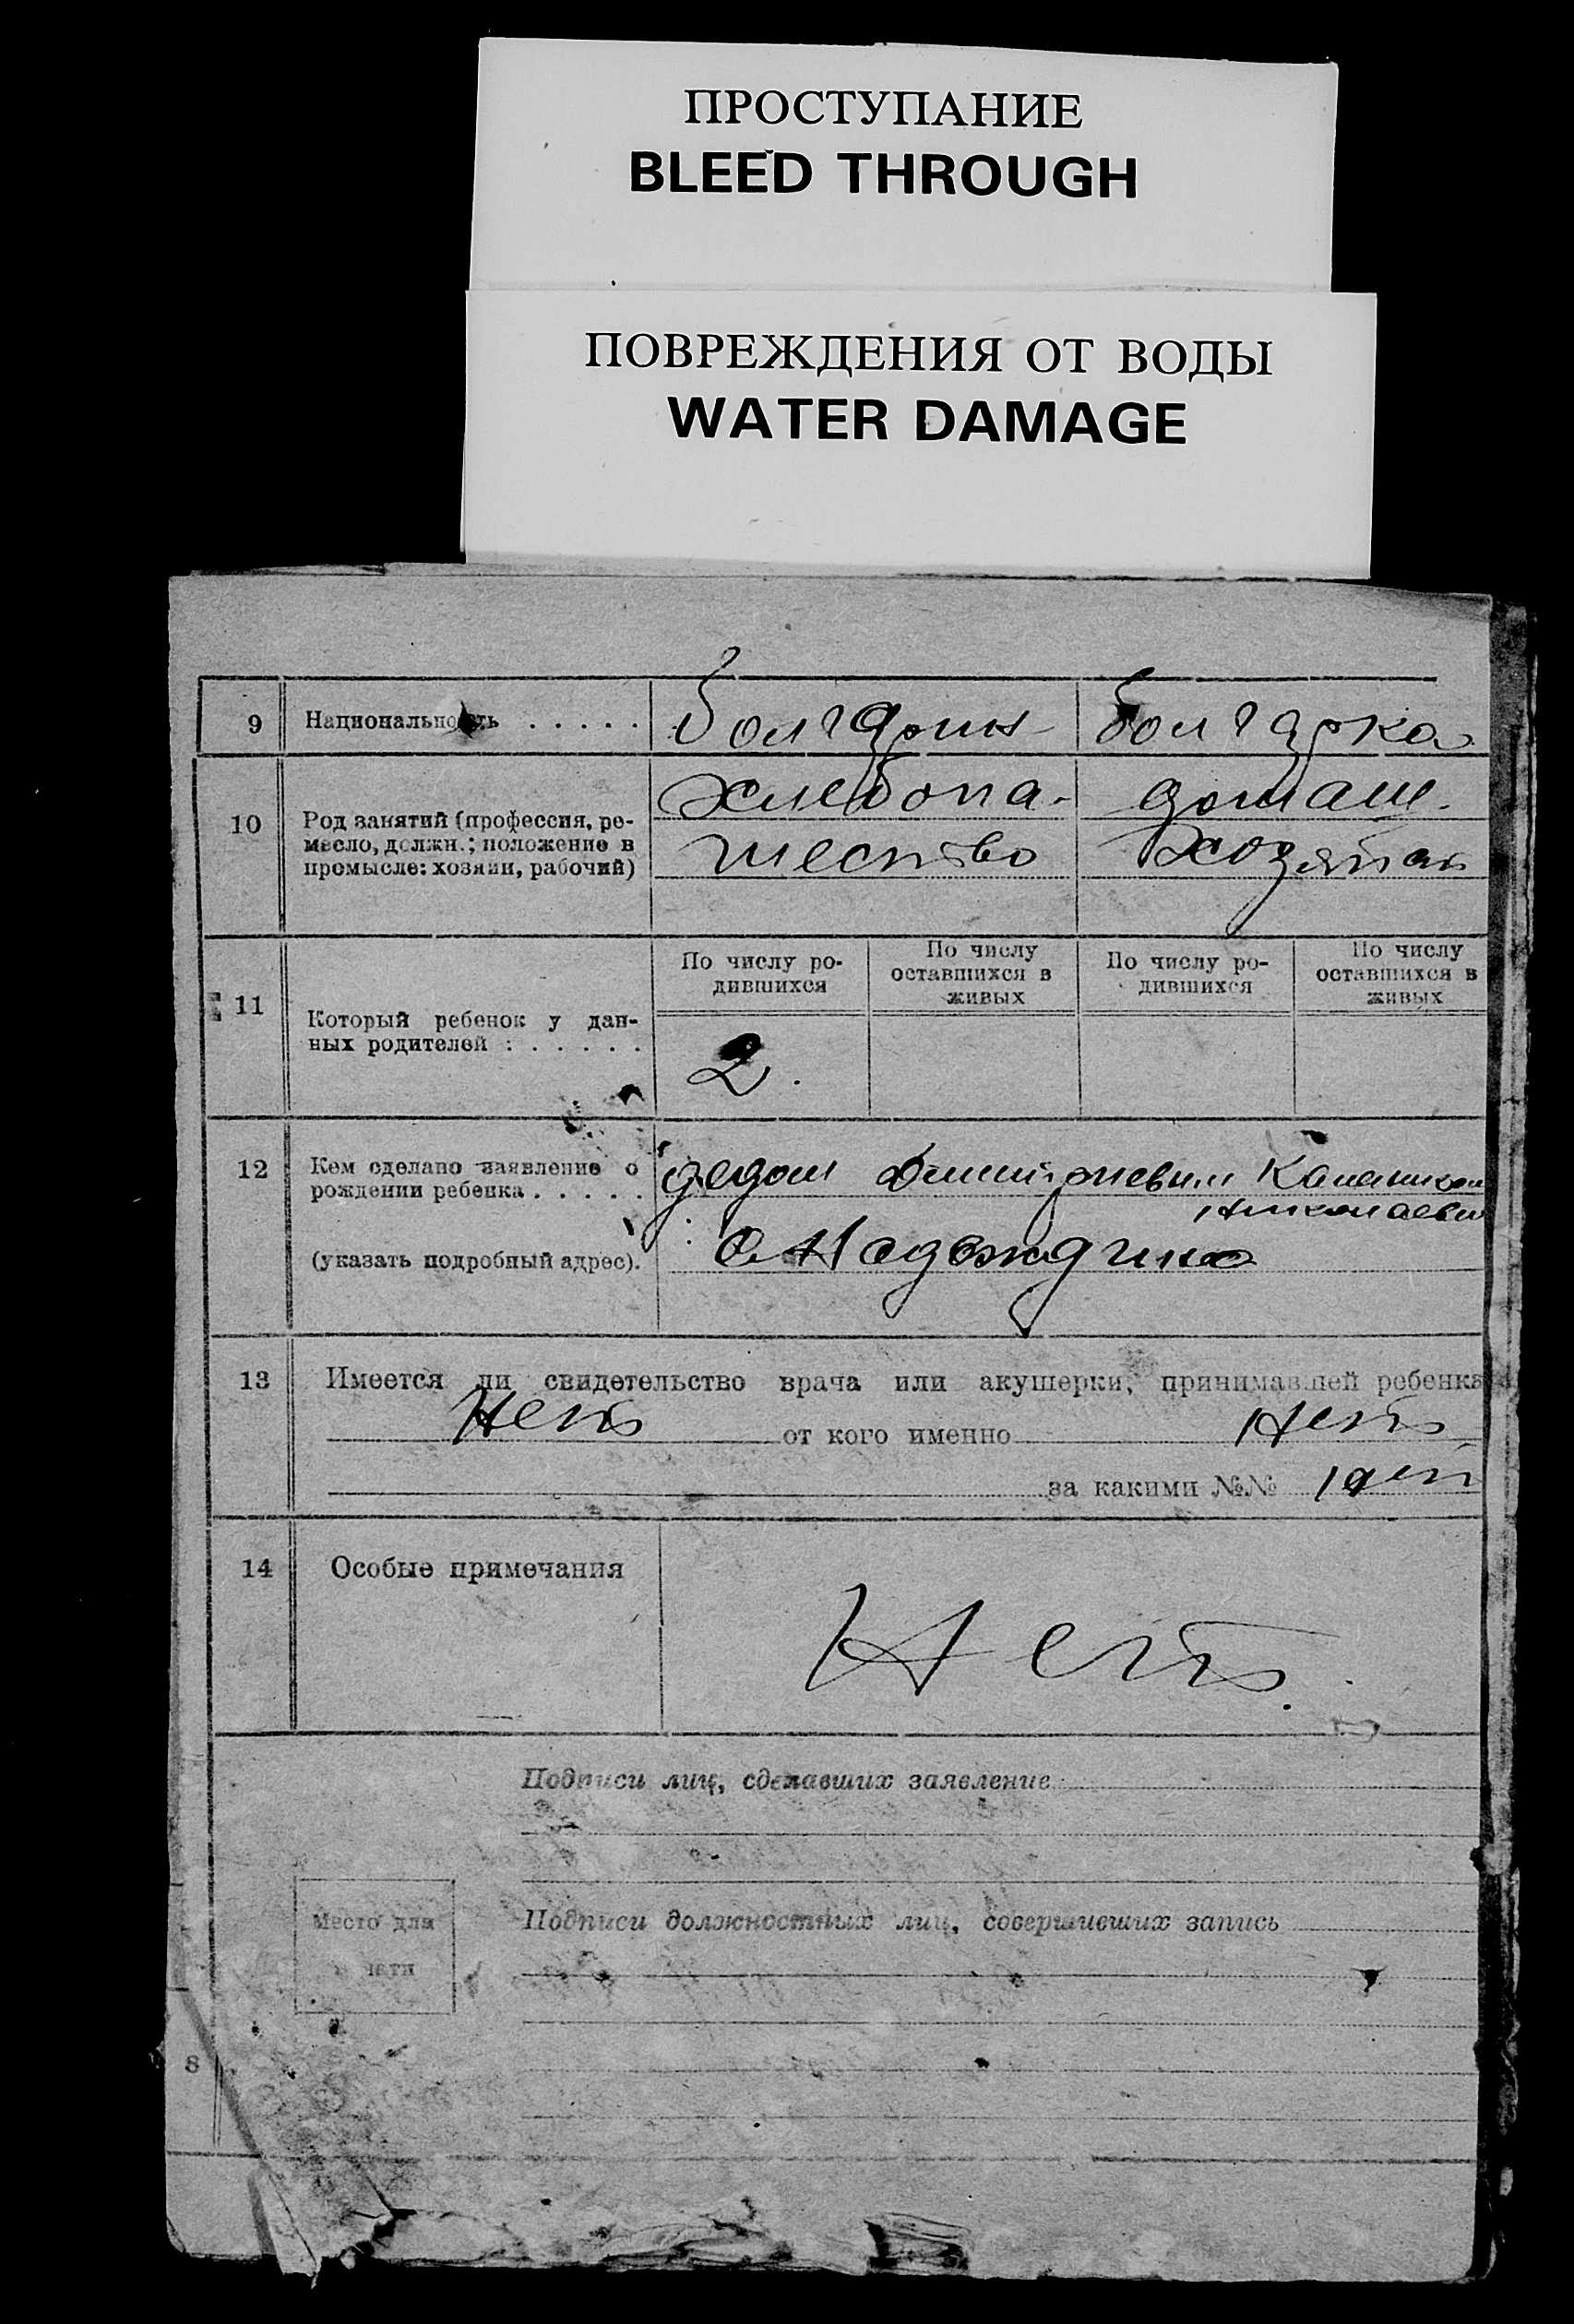 ПРОСТУПАНИЕ
BLEED THROUGH
ПОВРЕЖДЕНИЯ ОТ ВОДЫ
WATER DAMAGE
9 Национальность . . . . . болгарин болгарка
10 Род занятий (профессия, ре-
месло, должн.; положение в
промысле: хозяин, рабочий)
хлебопа- домаш.
шество хозяйка
11 Который ребенок у дан-
ных родителей : . . . . .
По числу ро-
дившихся
По числу
оставшихся в
живых
По числу ро-
дившихся
По числу
оставшихся в
живых
2.
12 Кем сделано заявление о
рождении ребенка . . . . .
дедом
(указать подробный адрес).
13 Имеется ли свидетельство врача или акушерки, принимавшей ребенка
Нетъ от кого именно Нетъ
за какими №№
14 Особые примечания
Нетъ.
Подписи лиц, сделавших заявление
Место для
печати
Подписи должностных лиц, совершивших запись
8